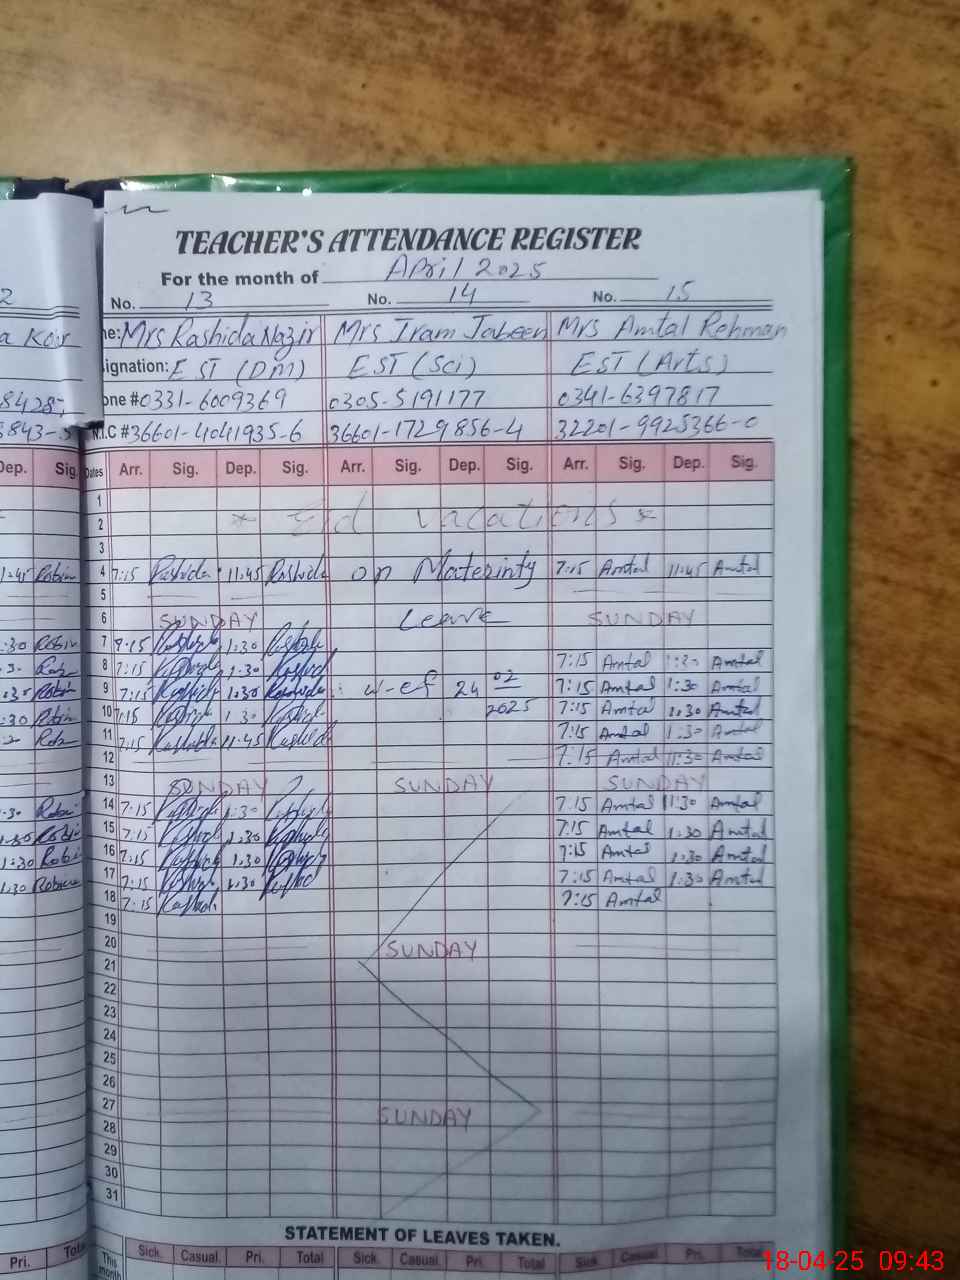 TEACHER'S ATTENDANCE REGISTER
For the month of April 2025
No. 13 No. 14 No. 15
2
ne: Mrs Rashida Nazir Mrs Iram Jabeen Mrs Amtal Rehman
a Kosr
ignation: EST (DM) EST (Sci) EST (Arts)
one # 0331-6009369 0305-5191177 0341-6397817
N.I.C # 36601-4041935-6 36601-1729856-4 32201-9925366-0
Dep. Sig. Dates Arr. Sig. Dep. Sig. Arr. Sig. Dep. Sig. Arr. Sig. Dep. Sig.
1
2 * Eid vacations *
3
1:45 Robin 4 7:15 Rashida 11:45 Rashida on Materinty 7:15 Amtal 11:45 Amtal
5
6 SUNDAY Leave SUNDAY
:30 Robin 7 7:15 Rashida 1:30 Rashida
8 7:15 Rashida 1:30 Rashida 7:15 Amtal 1:30 Amtal
9 7:15 Rashida 1:30 Rashida w-ef 24 02 7:15 Amtal 1:30 Amtal
:30 Robin 10 7:15 Rashida 1:30 Rashida 2025 7:15 Amtal 1:30 Amtal
11 7:15 Rashida 11:45 Rashida 7:15 Amtal 1:30 Amtal
12 7:15 Amtal 11:30 Amtal
13 SUNDAY SUNDAY SUNDAY
14 7:15 Rashida 1:30 Rashida 7:15 Amtal 11:30 Amtal
1:30 Robin 15 7:15 Rashida 1:30 Rashida 7:15 Amtal 1:30 Amtal
1:30 Robin 16 7:15 Rashida 1:30 Rashida 7:15 Amtal 1:30 Amtal
1:30 17 7:15 Rashida 1:30 Rashida 7:15 Amtal 1:30 Amtal
18 7:15 Rashida 7:15 Amtal
19
20 SUNDAY
21
22
23
24
25
26
27 SUNDAY
28
29
30
31
STATEMENT OF LEAVES TAKEN.
Pri. Total This month Sick. Casual. Pri. Total Sick. Casual. Pri. Total Sick. Casual Pri. Total
18-04-25 09:43